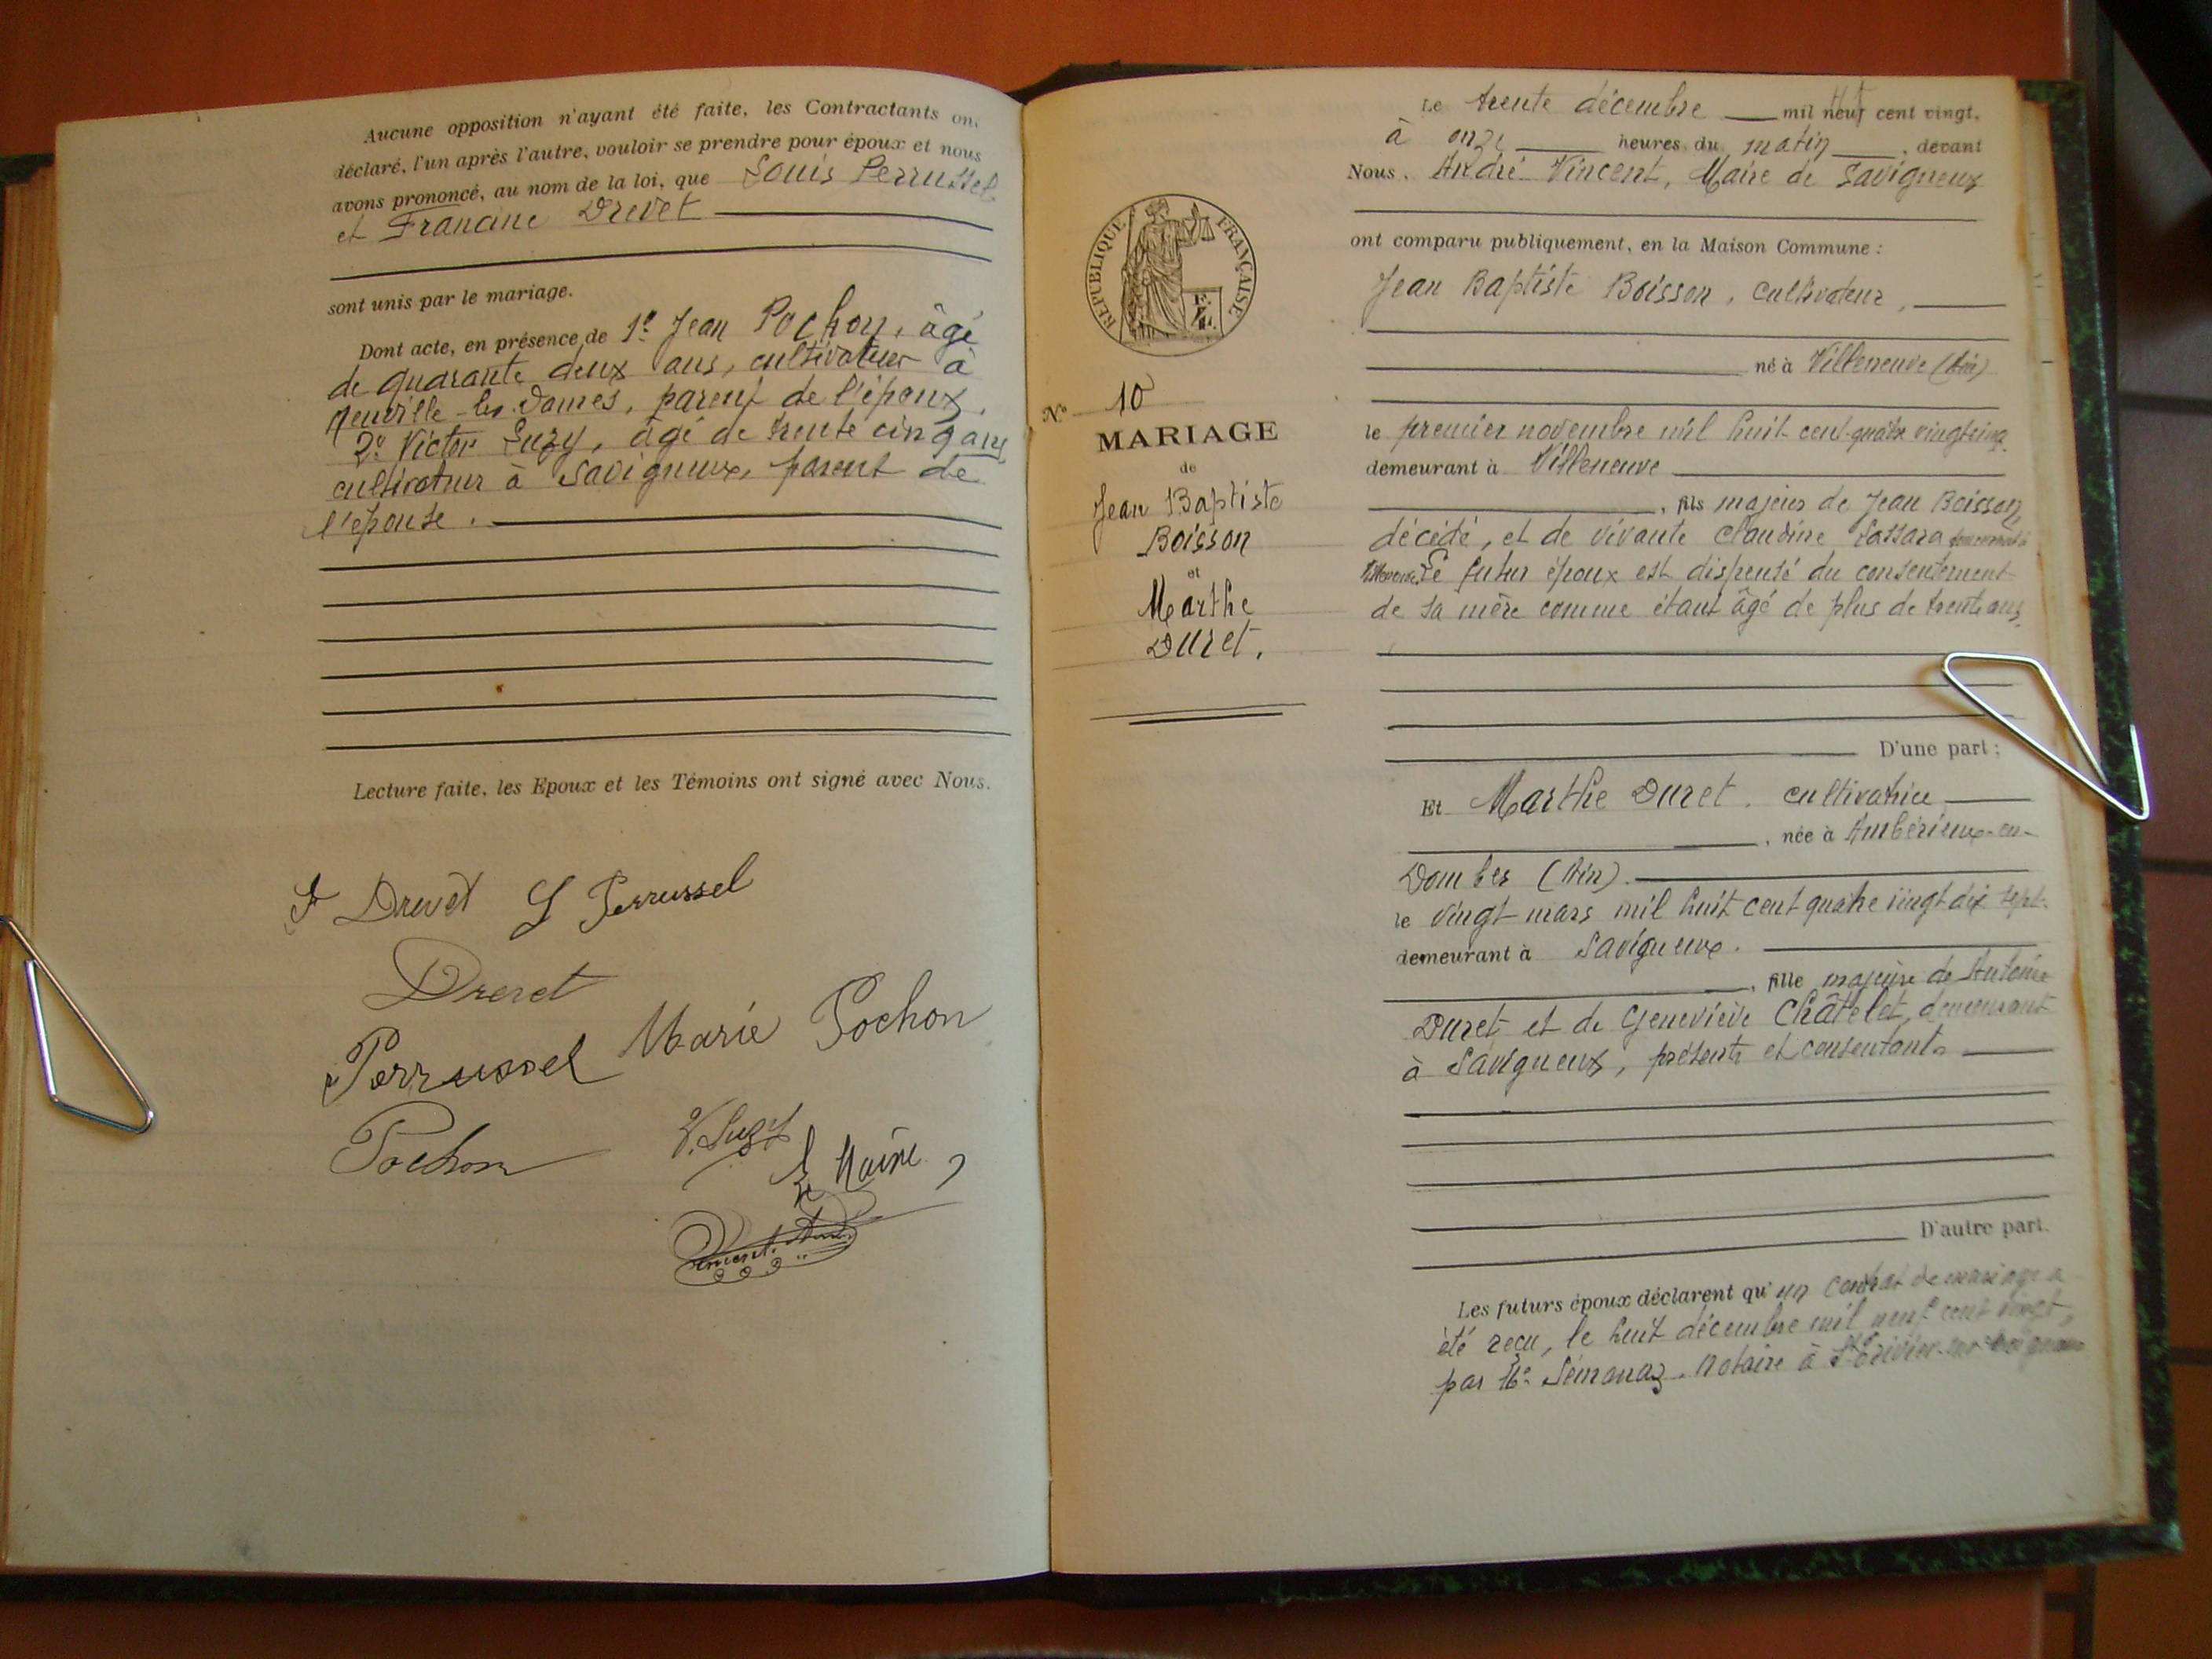 Aucune opposition n'ayant été faite, les Contractants on
déclaré, l'un après l'autre, vouloir se prendre pour époux et nous
avons prononcé, au nom de la loi, que Louis Perrussel
et Francine Drevet
sont unis par le mariage.
Dont acte, en présence de 1º Jean Pochon, âgé
de quarante deux ans, cultivateur à
Neuville-les-Dames, parent de l'époux.
2º Victor Luzy, âgé de trente cinq ans
cultivateur à Savigneux, parent de
l'épouse.
Lecture faite, les Epoux et les Témoins ont signé avec Nous.
F Drevet L Perrussel
Drevet
Perrussel Marie Pochon
Pochon V. Luzy
Le Maire
RÉPUBLIQUE FRANÇAISE
No 10
MARIAGE
de
Jean Baptiste
Boisson
et
Marthe
Duret.
Le trente décembre mil neuf cent vingt,
à onze heures du matin, devant
Nous, André Vincent, Maire de Savigneux
ont comparu publiquement, en la Maison Commune :
Jean Baptiste Boisson, cultivateur,
né à Villeneuve (Ain)
le premier novembre mil huit cent quatre vingt cinq
demeurant à Villeneuve
, fils majeur de Jean Boisson,
décédé, et de vivante Claudine Lassara demeurant à
Villeneuve. Le futur époux est dispensé du consentement
de sa mère comme étant âgé de plus de trente ans.
D'une part :
Et Marthe Duret, cultivatrice
, née à Ambérieux-en-
Dombes (Ain).
le vingt mars mil huit cent quatre vingt dix sept.
demeurant à Savigneux.
, fille majeure de Antoine
Duret et de Geneviève Châtelet, demeurant
à Savigneux, présents et consentants
D'autre part.
Les futurs époux déclarent qu'un contrat de mariage a
été reçu, le huit décembre mil neuf cent vingt,
par Me Sémanaz, notaire à St Trivier-sur-Moignans